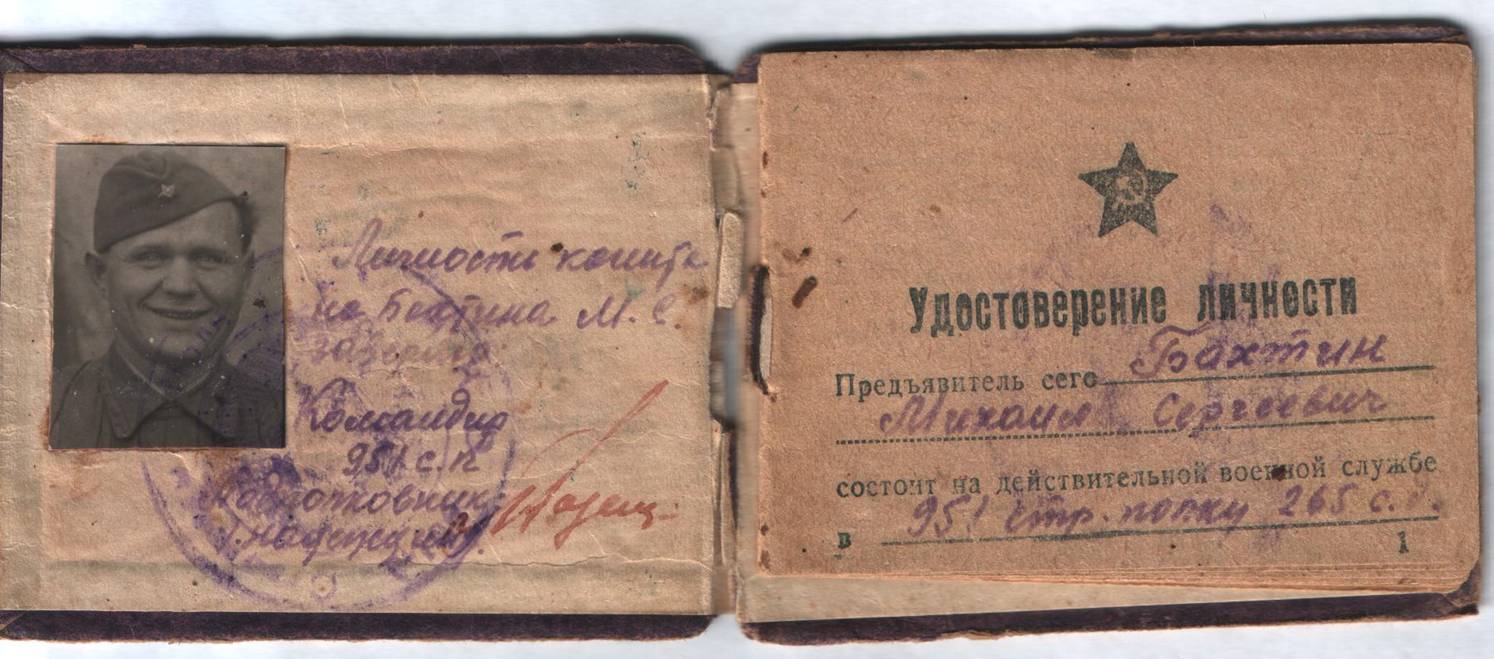 Личность капита
на Бахтина М. С.
заверяю
Командир
951 с.п
Подполковник
Удостоверение личности
Предъявитель сего Бахтин
Михаил Сергеевич
состоит на действительной военной службе
в 951 стр. полку 265 с.
1